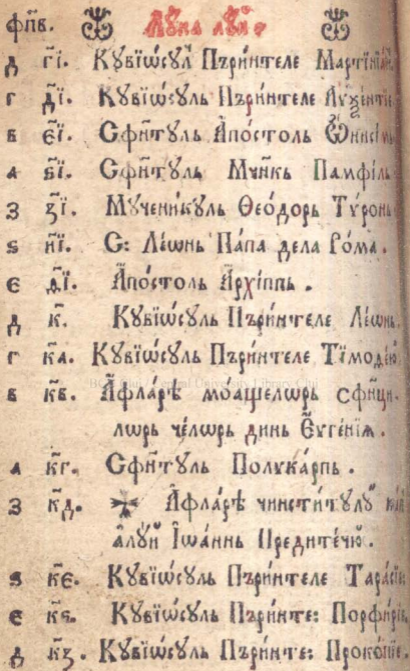 фп҃в. Лꙋна лꙋй
д г҃і. Кꙋвїѡ́сꙋл Пъри́нтеле Мартїнїа́н
г д҃ї. Кꙋвїѡ́сꙋль Пъри́нтеле Аѵѯе́нтїе
в є҃ї. Сфн҃тꙋль Апо́столь Ѻ҆ниси́мь
а ѕ҃ї. Сфн҃тꙋль Мꙋ҃нкь Памфі́ль
з з҃ї. Мꙋ́ченикꙋль Ѳео́дорь Тѵ́ронь
ѕ и҃ї. С: Лѐѡнь Па́па дела Ро́ма.
є ѳ҃ї. Апо́столь Архі́ппь.
д к҃. Кꙋвїѡ́сꙋль Пъри́нтеле Ле́ѡнь
г к҃а. Кꙋвїѡ́сꙋль Пъри́нтеле Тїмоде́ю
в к҃в. Афла́рѣ моащелѡрь сфн҃ци
лѡрь че́лѡрь динь Еѵге́нїѧ.
а к҃г. Сфн҃тꙋль Полꙋка́рпь.
з к҃д. Афла́рѣ чинсти́тꙋлꙋй ка́п
алꙋй Їѡа́ннь Предите́чю.
ѕ к҃є. Кꙋвїѡ́сꙋль Пъри́нтеле Тара́сїе:
є к҃ѕ. Кꙋвїѡ́сꙋль Пъри́нте: Порфи́рїе,
д к҃з. Кꙋвїѡ́сꙋль Пъри́нте: Проко́пїе.